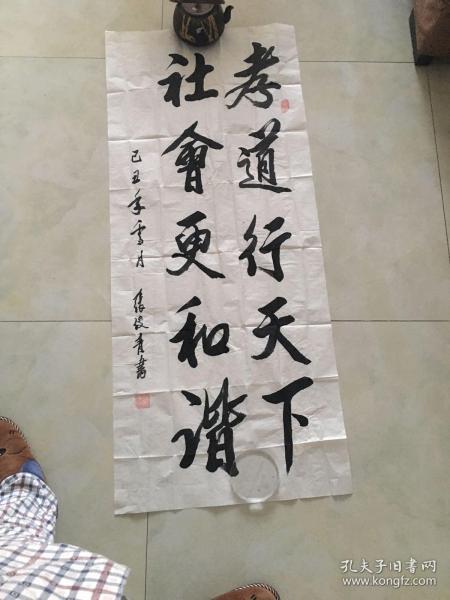 孝道行天下
社會更和谐
己丑年雪月 張俊青書
孔夫子旧书网
www.kongfz.com